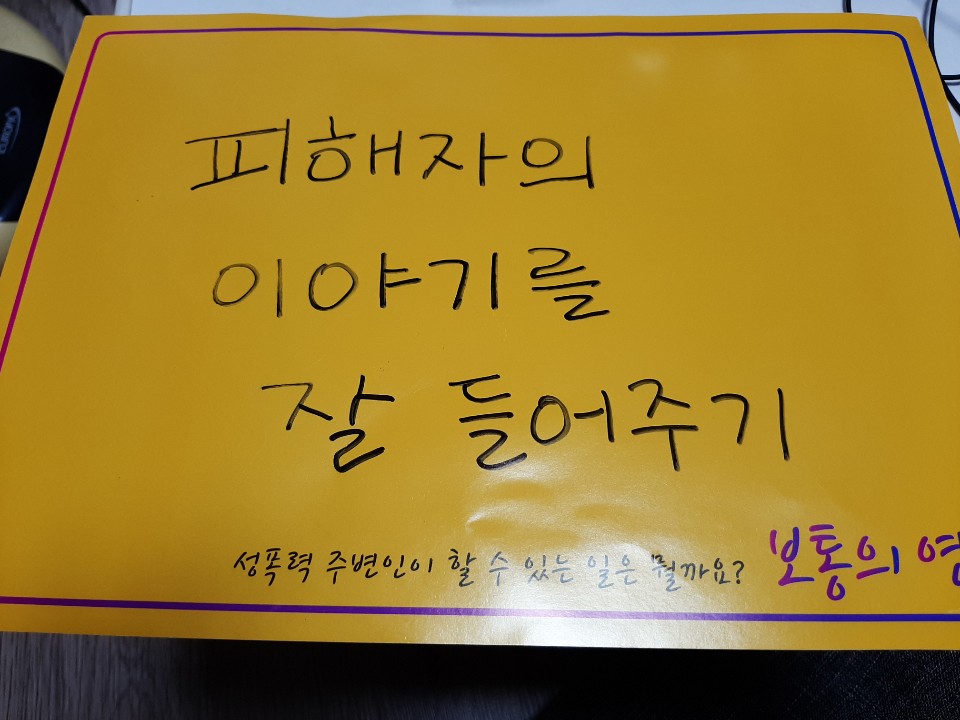 피해자의
이야기를
잘 들어주기
성폭력 주변인이 할 수 있는 일은 뭘까요?
보통의
CUROX